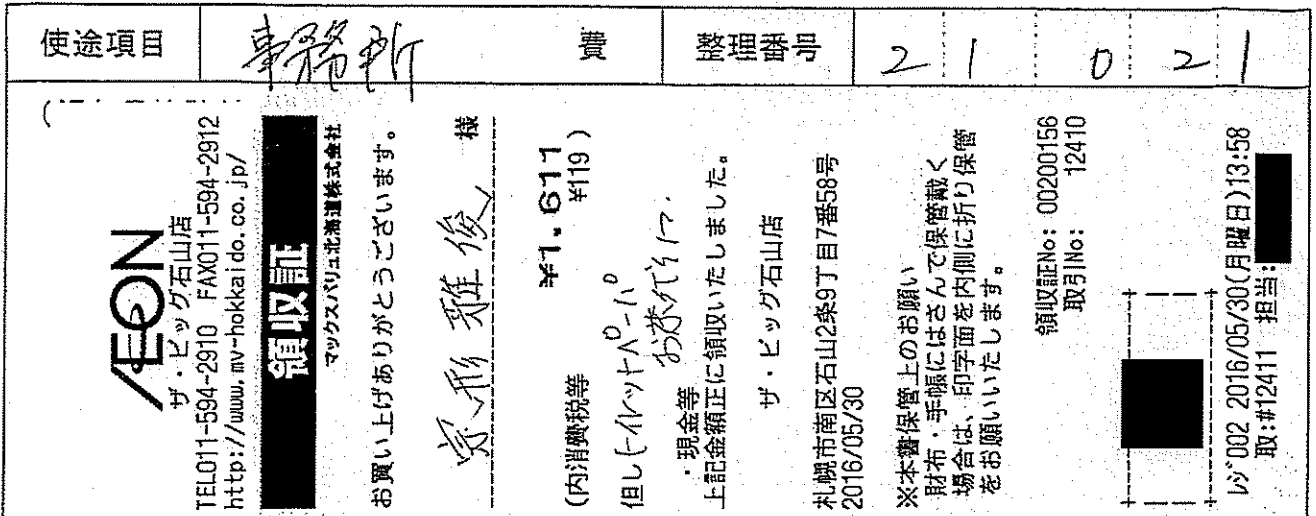 使途項目 事務所 費 整理番号 21 021
AEON
ザ・ビッグ石山店
TEL011-594-2910 FAX011-594-2912
http://www.mv-hokkaido.co.jp/
領収証
マックスバリュ北海道株式会社
お買い上げありがとうございます。
宗形 雅俊 様
¥1,611
(内消費税等 ¥119)
但し(トイレットペーパー
お茶代)
・現金等
上記金額正に領収いたしました。
ザ・ビッグ石山店
札幌市南区石山2条9丁目7番58号
2016/05/30
※本書保管上のお願い
財布・手帳にはさんで保管戴く
場合は、印字面を内側に折り保管
をお願いいたします。
領収証No: 00200156
取引No: 12410
レジ002 2016/05/30(月曜日)13:58
取:#12411 担当: